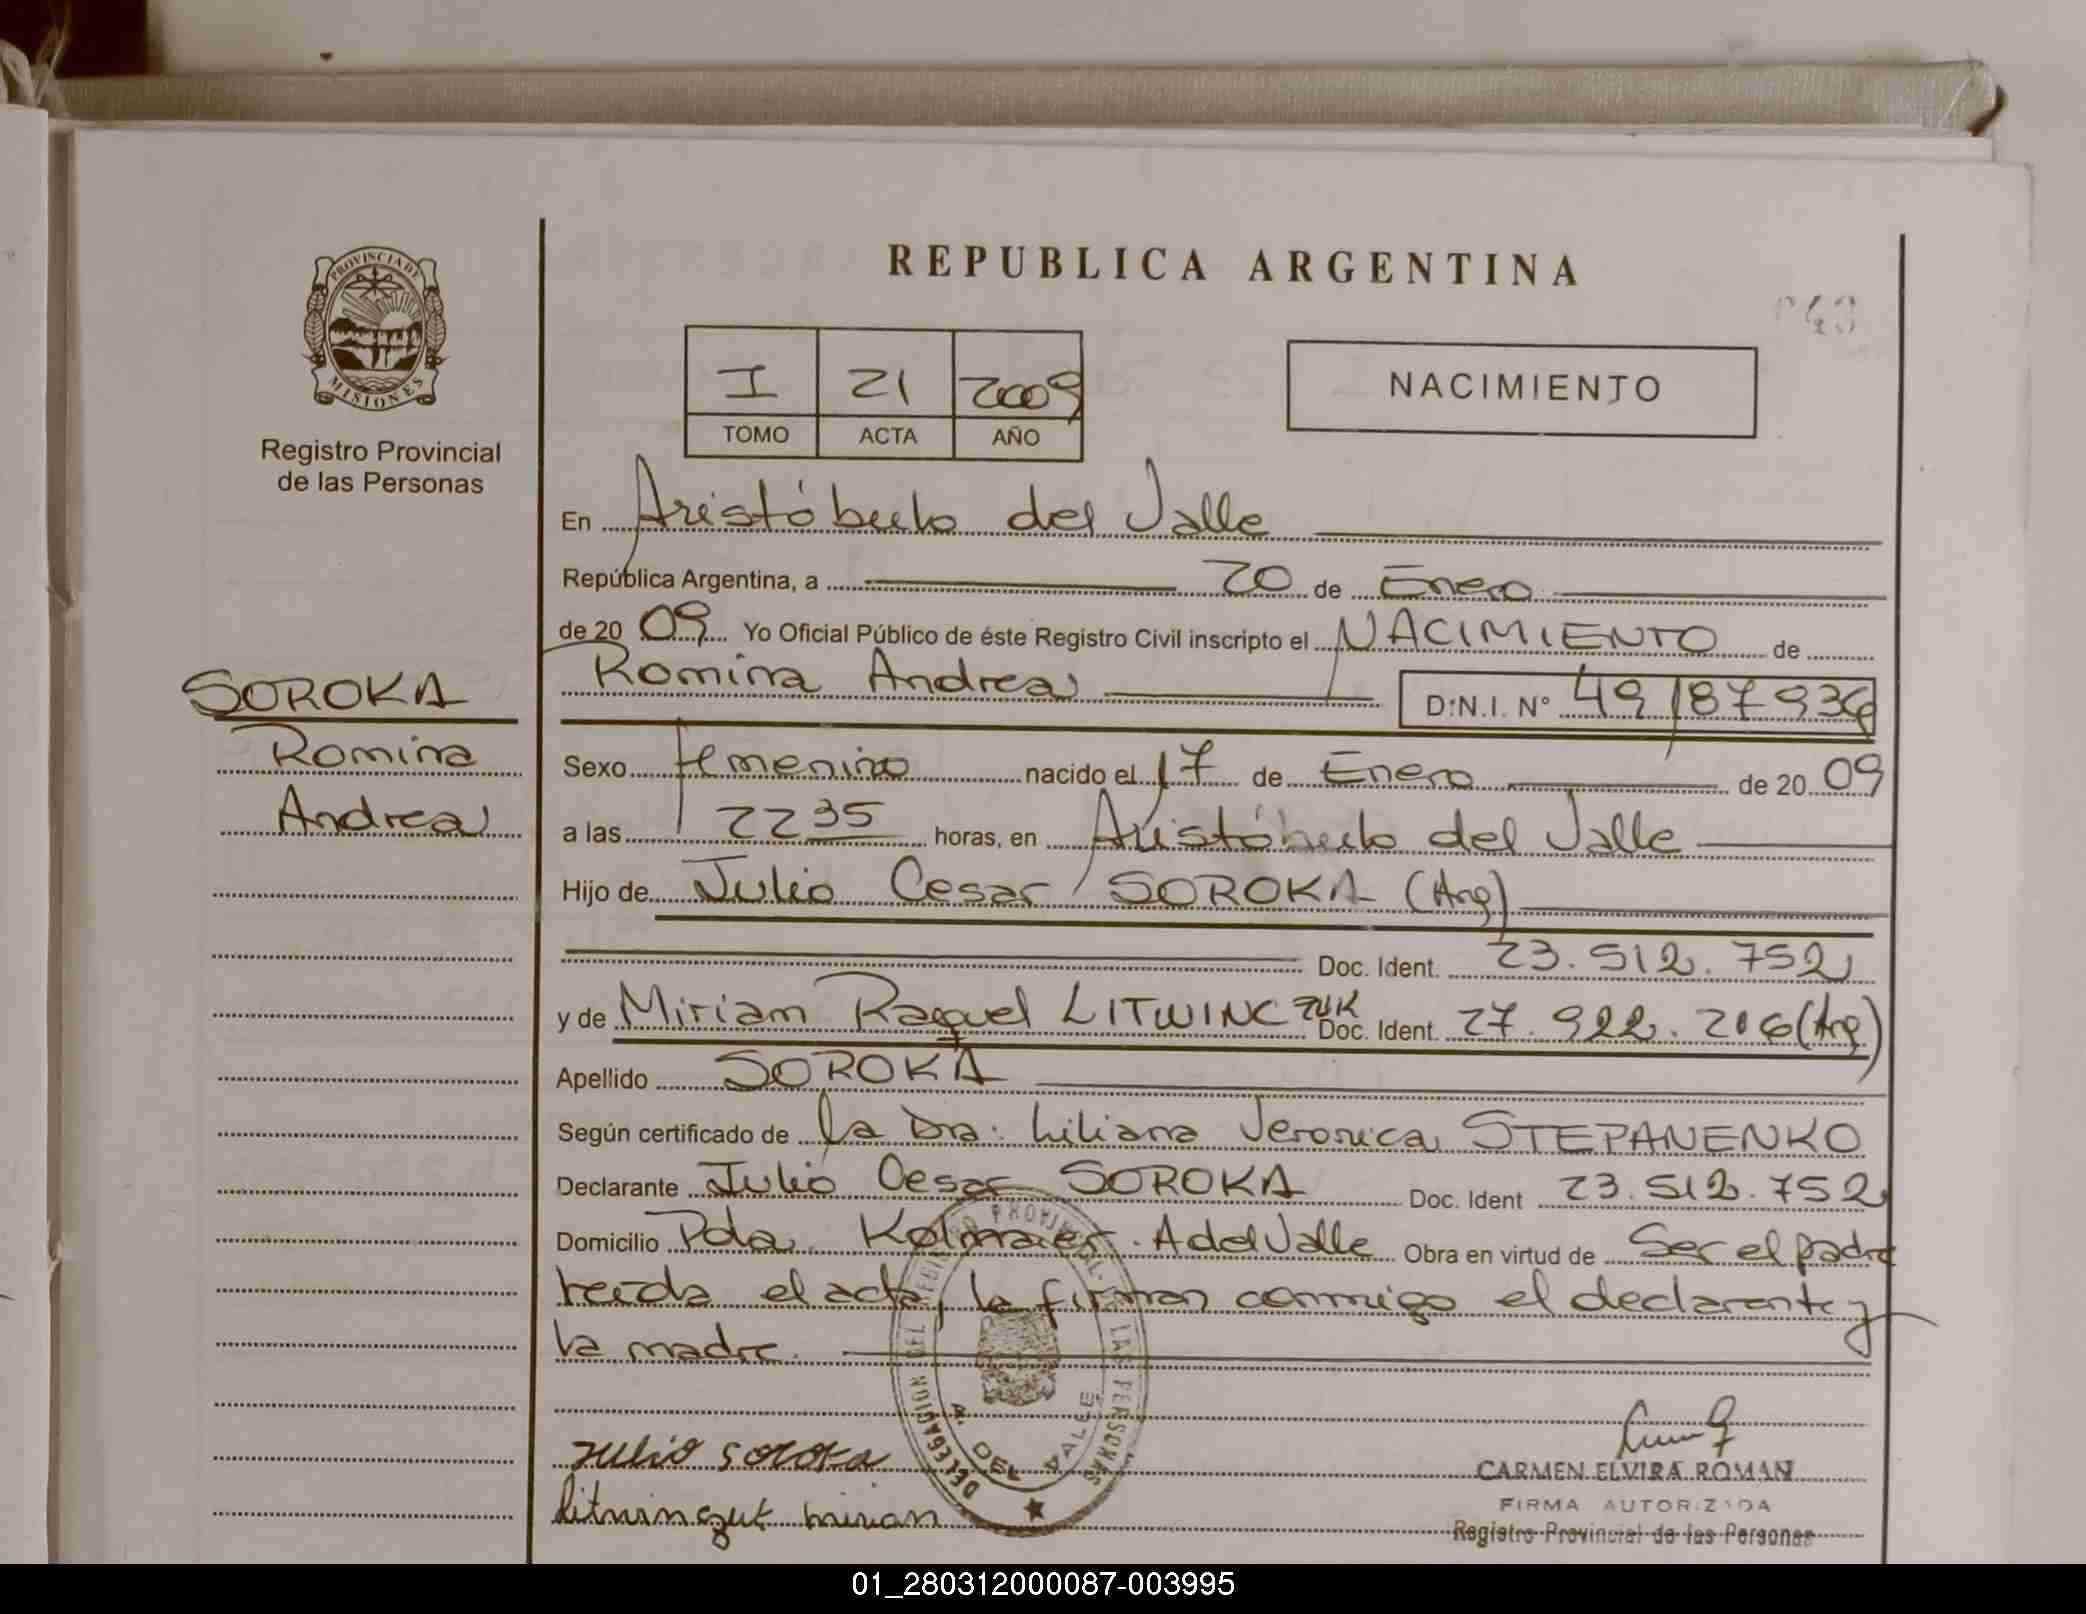 PROVINCIA DE
MISIONES
Registro Provincial
de las Personas
SOROKA
Romina
Andrea
REPUBLICA ARGENTINA
I 21 2009
TOMO ACTA AÑO
NACIMIENTO
En Aristóbulo del Valle
República Argentina, a 20 de Enero
de 20 09 Yo Oficial Público de éste Registro Civil inscripto el NACIMIENTO de
Romina Andrea D.N.I. Nº 49187936
Sexo femenino nacido el 17 de Enero de 20 09
a las 2235 horas, en Aristóbulo del Valle
Hijo de Julio Cesar SOROKA (Arg)
Doc. Ident. 23.512.752
y de Miriam Raquel LITWINCZUK Doc. Ident. 27.922.206 (Arg)
Apellido SOROKA
Según certificado de la Dra. Liliana Veronica STEPANENKO
Declarante Julio Cesar SOROKA Doc. Ident 23.512.752
Domicilio Pda. Kolmaier. A del Valle Obra en virtud de Ser el padre
Leída el acta, la firman conmigo el declarante y
la madre.
DELEGACION DEL REGISTRO PROVINCIAL DE LAS PERSONAS
A. DEL VALLE
Julio soroka
litwinczuk mirian
CARMEN ELVIRA ROMAN
FIRMA AUTORIZADA
Registro Provincial de las Personas
01_280312000087-003995